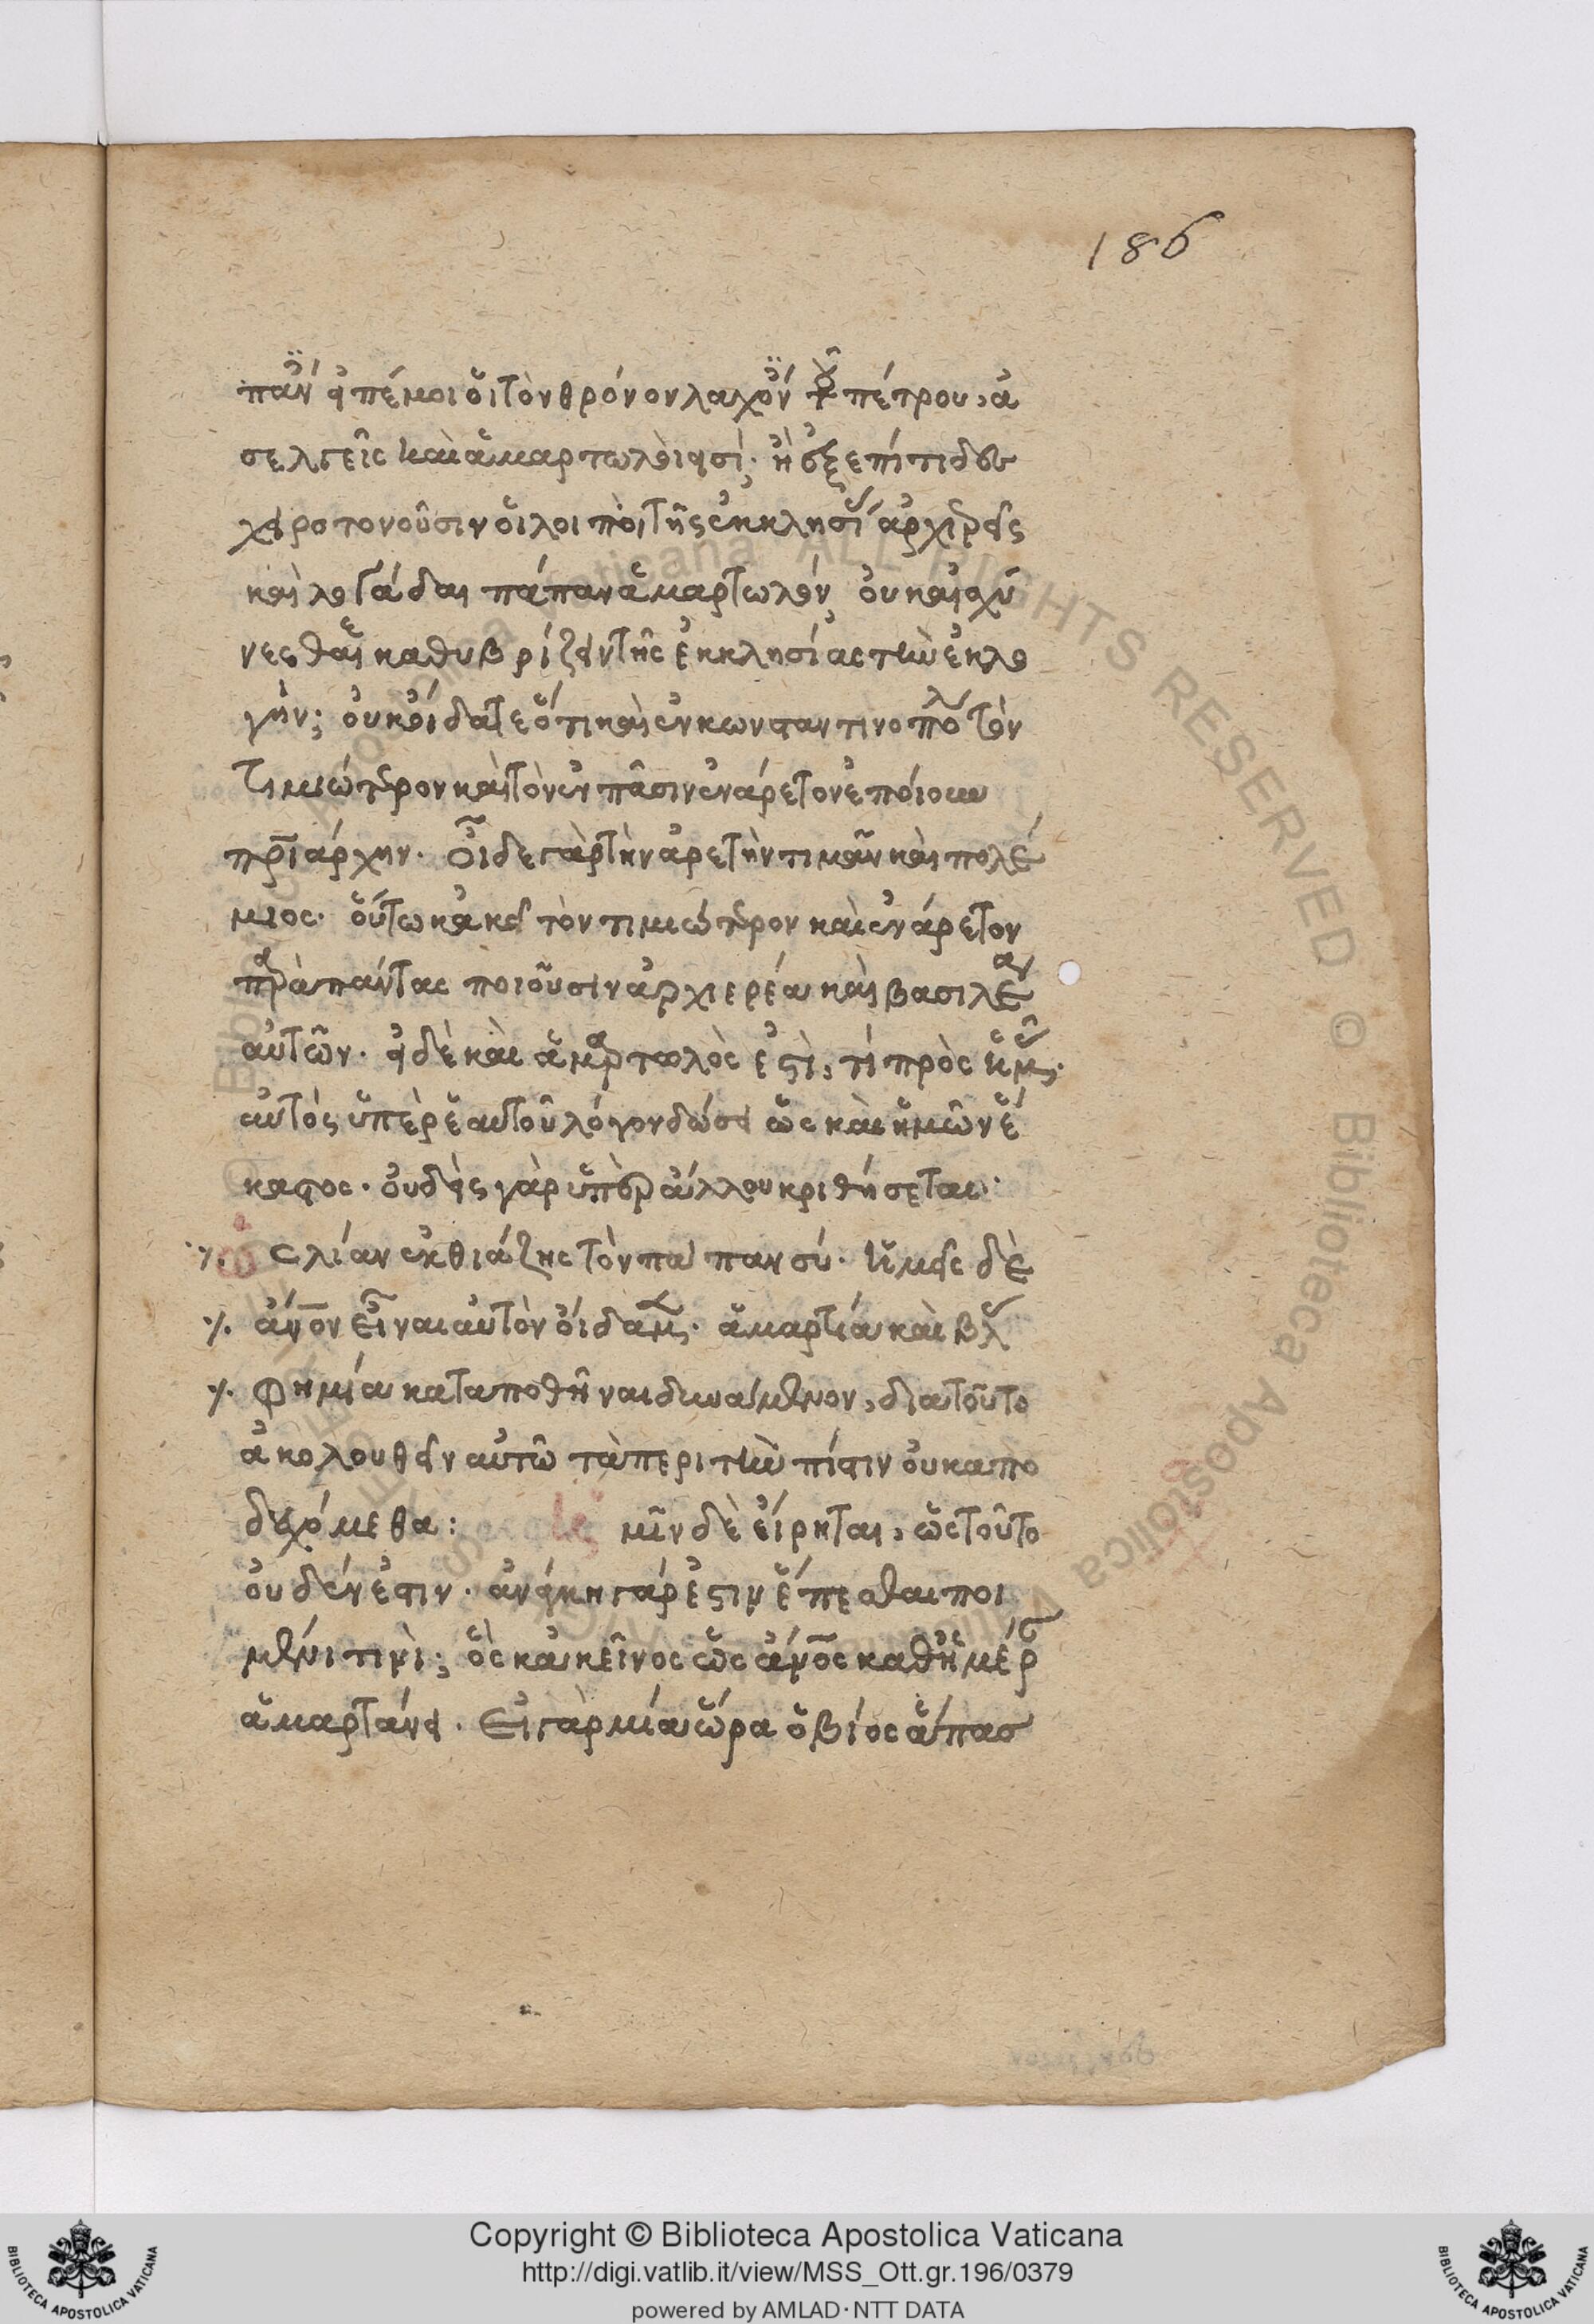 186
πᾶν εἰπέ μοι οἱ τὸν θρόνον λαχόν τοῦ πέτρου, ἀ
σελγεῖς καὶ ἁμαρτωλοί εἰσι· ἢ οὐκ ἐπίτηδες
χειροτονοῦσιν οἱ λοιποὶ τῆς ἐκκλησίας ἀρχιερεῖς
καὶ λογάδαι πάπαν ἁμαρτωλὸν, οὐκ αἰσχύ
νεσθαι καθυβρίζειν τῆς ἐκκλησίας τὴν ἐκλο
γήν; οὐκ οἴδατε ὅτι καὶ ἐν κωνσταντινοπόλει τὸν
τιμιώτερον καὶ τὸν ἐν πᾶσιν ἐνάρετον ἐποίουν
πατριάρχην. οἶδε γὰρ τὴν ἀρετὴν τιμᾶν καὶ πολέ
μιος. οὕτω κἀκεῖ τὸν τιμιώτερον καὶ ἐνάρετον
παρὰ πάντας ποιοῦσιν ἀρχιερέα καὶ βασιλέαν
αὐτῶν. εἰ δὲ καὶ ἁμαρτωλὸς ἐστὶ, τί πρὸς ἡμᾶς·
αὐτὸς ὑπὲρ ἑαυτοῦ λόγον δώσει ὡς καὶ ἡμῶν ἕ
καστος. οὐδεὶς γὰρ ὑπὲρ ἄλλου κριθήσεται·
λίαν ἐκθιάζῃς τὸν πάπαν σύ. ἡμεῖς δὲ
ἄνον εἶναι αὐτὸν οἴδαμεν. ἁμαρτία καὶ βλ
φημία καταποθῆναι δυνάμενον, διατοῦτο
ἀκολουθεῖν αὐτῶ τὰ περὶ τὴν πίστιν οὐκ ἀπο
δεχόμεθα: μῖν δὲ εἴρηται, ὡς τοῦτο
οὐδέν ἐστιν. ἀνάγκη γάρ ἐστιν ἕπεσθαι ποι
μένι τινὶ; ὃς κἀκεῖνος ὡς ἄνος καθ ἡμέρ
ἁμαρτάνει. εἰ γὰρ μία ὥρα ὁ βίος ἅπας
Copyright © Biblioteca Apostolica Vaticana
http://digi.vatlib.it/view/MSS_Ott.gr.196/0379
powered by AMLAD·NTT DATA
BIBLIOTECA APOSTOLICA VATICANA
BIBLIOTECA APOSTOLICA VATICANA